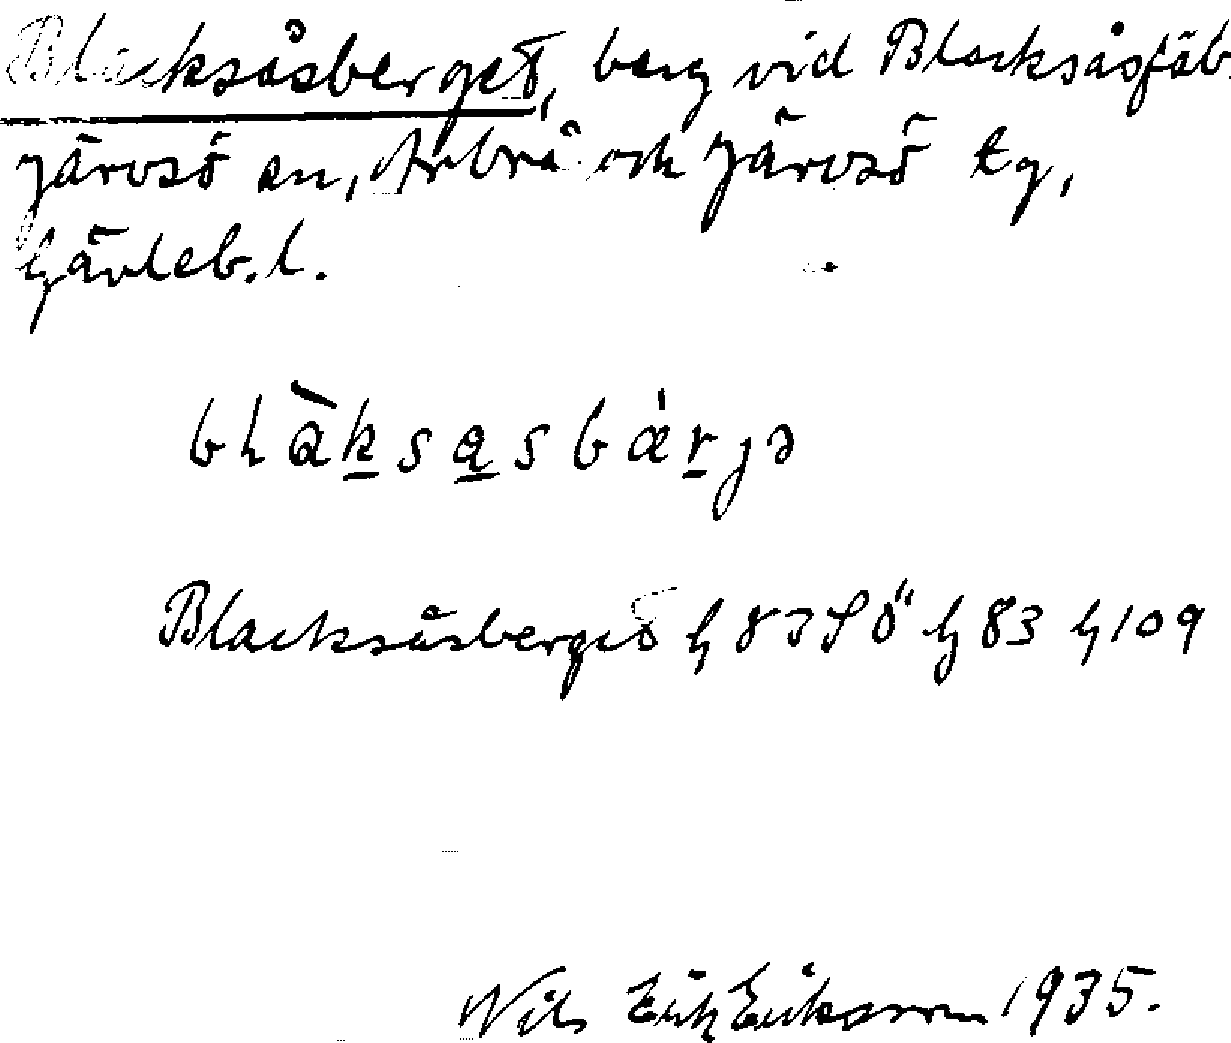 Blacksåsberget, berg vid Blacksåsfäb.
Järvsö sn, Arbrå och Järvsö tg,
Gävleb. l.
blàksasbárjə
Blacksåsberget G 83 SÖ" G 83 G 109
Nils Erik Eriksson 1935.